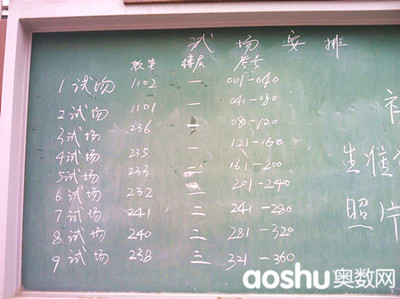 试场安排
教室 楼层 考号
1试场 1102 一 001-040
2试场 1101 一 041-080
3试场 236 二 081-120
4试场 235 二 121-160
5试场 233 二 161-200
6试场 232 二 201-240
7试场 241 二 241-280
8试场 240 二 281-320
9试场 238 三 321-360
生准
照片
aoshu奥数网